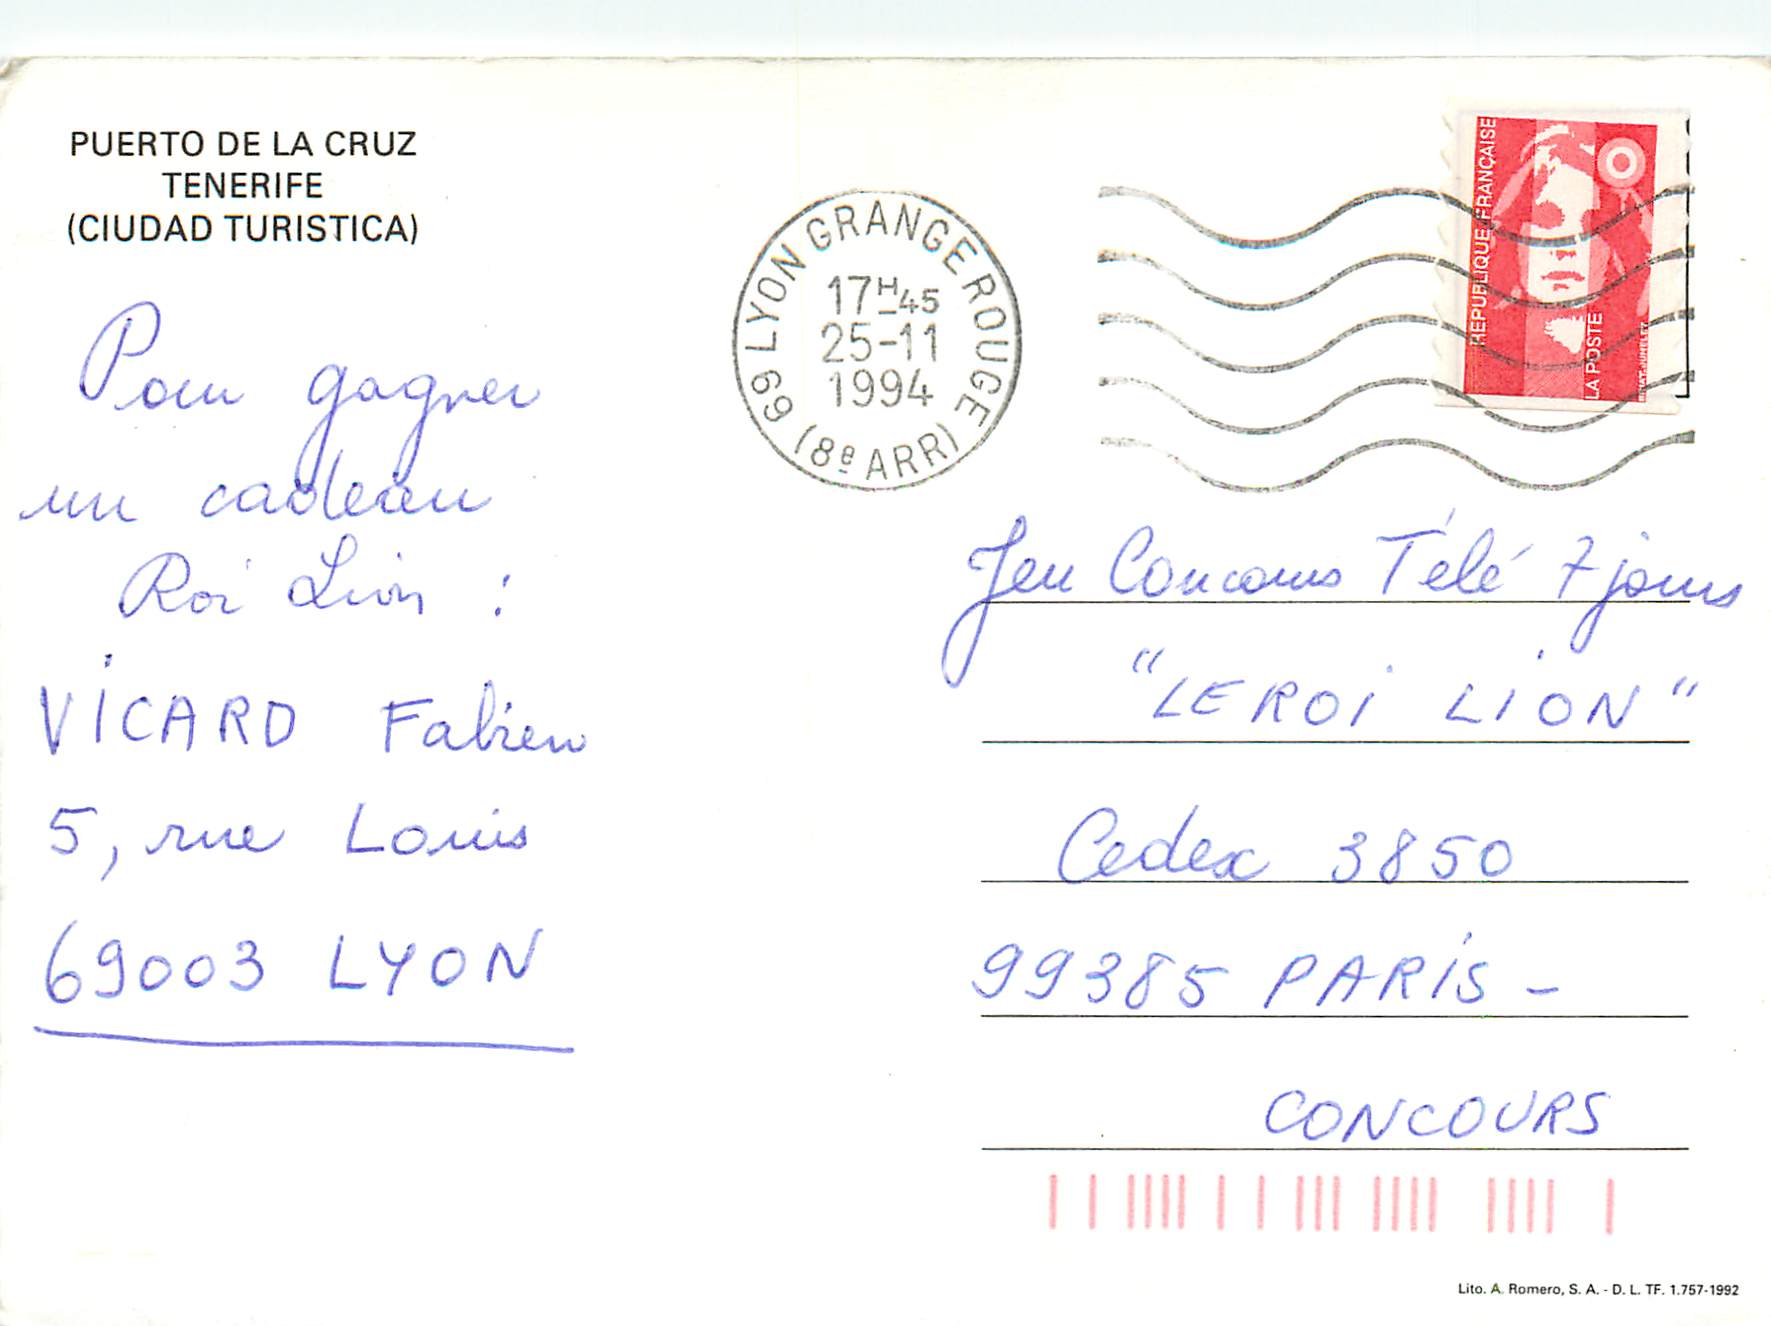 PUERTO DE LA CRUZ
TENERIFE
(CIUDAD TURISTICA)
Pour gagner
un cadeau
Roi Lion :
VICARD Fabien
5, rue Louis
69003 LYON
69 LYON GRANGE ROUGE (8e ARR)
17H45
25-11
1994
REPUBLIQUE FRANÇAISE
LA POSTE
Jeu Concours Télé 7 jours
"LE ROI LION"
Cedex 3850
99385 PARIS -
CONCOURS
Lito. A. Romero, S. A. - D. L. TF. 1.757-1992